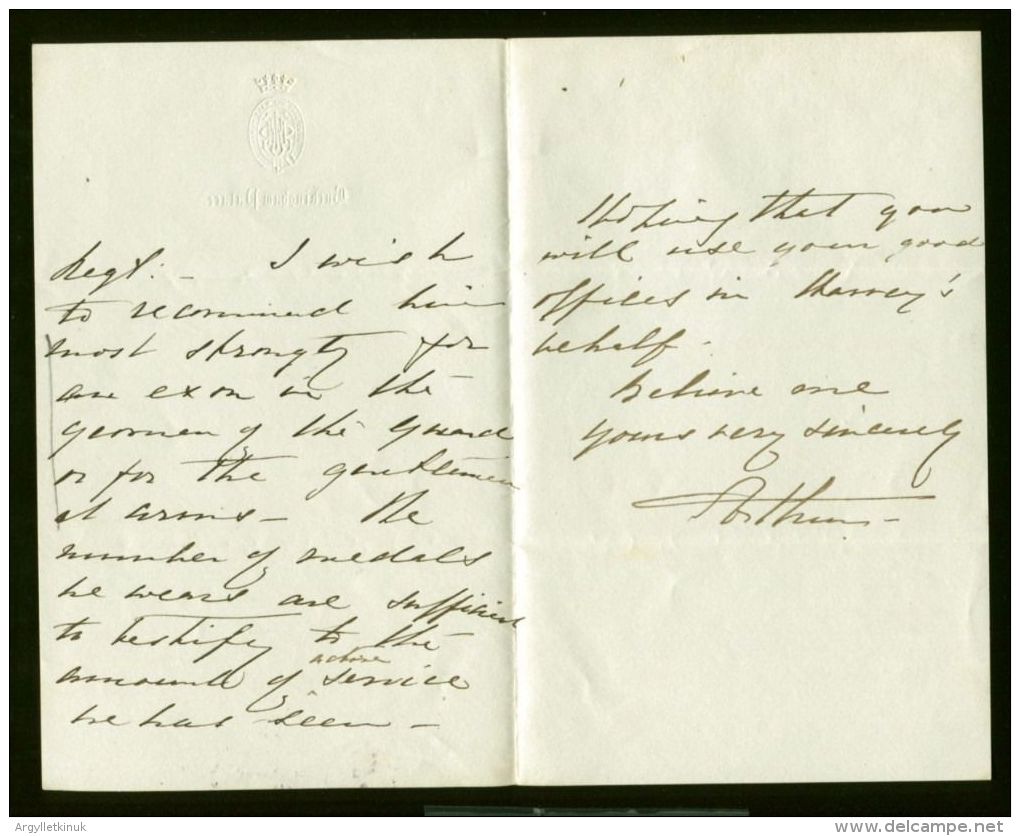 Buckingham Palace
Regt. – I wish
to recommend him
most strongly for
an exon in the
yeomen of the Guard
or for the gentlemen
at arms – The
number of medals
he wears are sufficient
to testify to the
active
amount of service
he has seen –
Hoping that you
will use your good
offices in Harvey's
behalf.
Believe me
yours very sincerely
Arthur –
Argylletkinuk
www.delcampe.net